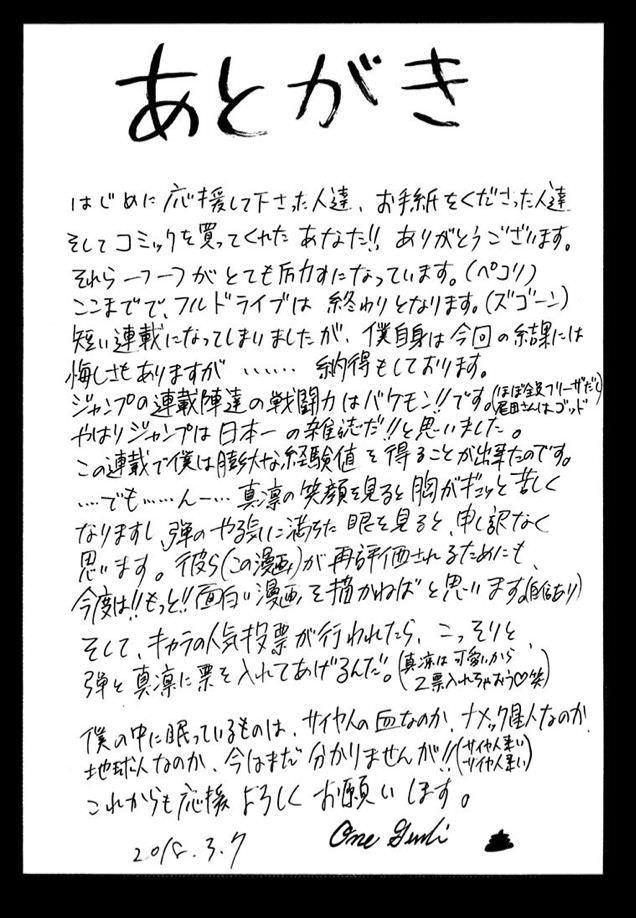 あとがき
はじめに応援して下さった人達、お手紙をくださった人達
そしてコミックを買ってくれたあなた!! ありがとうございます。
それら一つ一つがとても励力すになっています。(ペコリ)
ここまでで、フルドライブは終わりとなります。(ズゴーン)
短い連載になってしまいましたが、僕自身は今回の結果には
悔しさもありますが…… 納得もしております。
ジャンプの連載陣達の戦闘力はバケモン!!です。(ほぼ全員フリーザだし 尾田さんはゴッド)
やはりジャンプは日本一の雑誌だ!!と思いました。
この連載で僕は膨大な経験値を得ることが出来たのです。
‥‥でも……んー… 真凛の笑顔を見ると胸がギュッと苦しく
なりますし、弾のやる気に満ちた眼を見ると、申し訳なく
思います。彼ら(この漫画)が再評価されるためにも、
今度は!!もっと!!面白い漫画を描かねばと思います。(自信あり)
そして、キャラの人気投票が行われたら、こっそりと、
弾と真凛に票を入れてあげるんだ。(真凛は可愛いから 2票入れちゃおう♡笑)
僕の中に眠っているものは、サイヤ人の血なのか、ナメック星人なのか、
地球人なのか、今はまだ分かりませんが!!(サイヤ人来い サイヤ人来い)
これからも応援よろしくお願いします。
2018.3.7